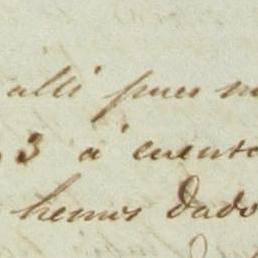 alli pues
3 á cuenta
hemos dado